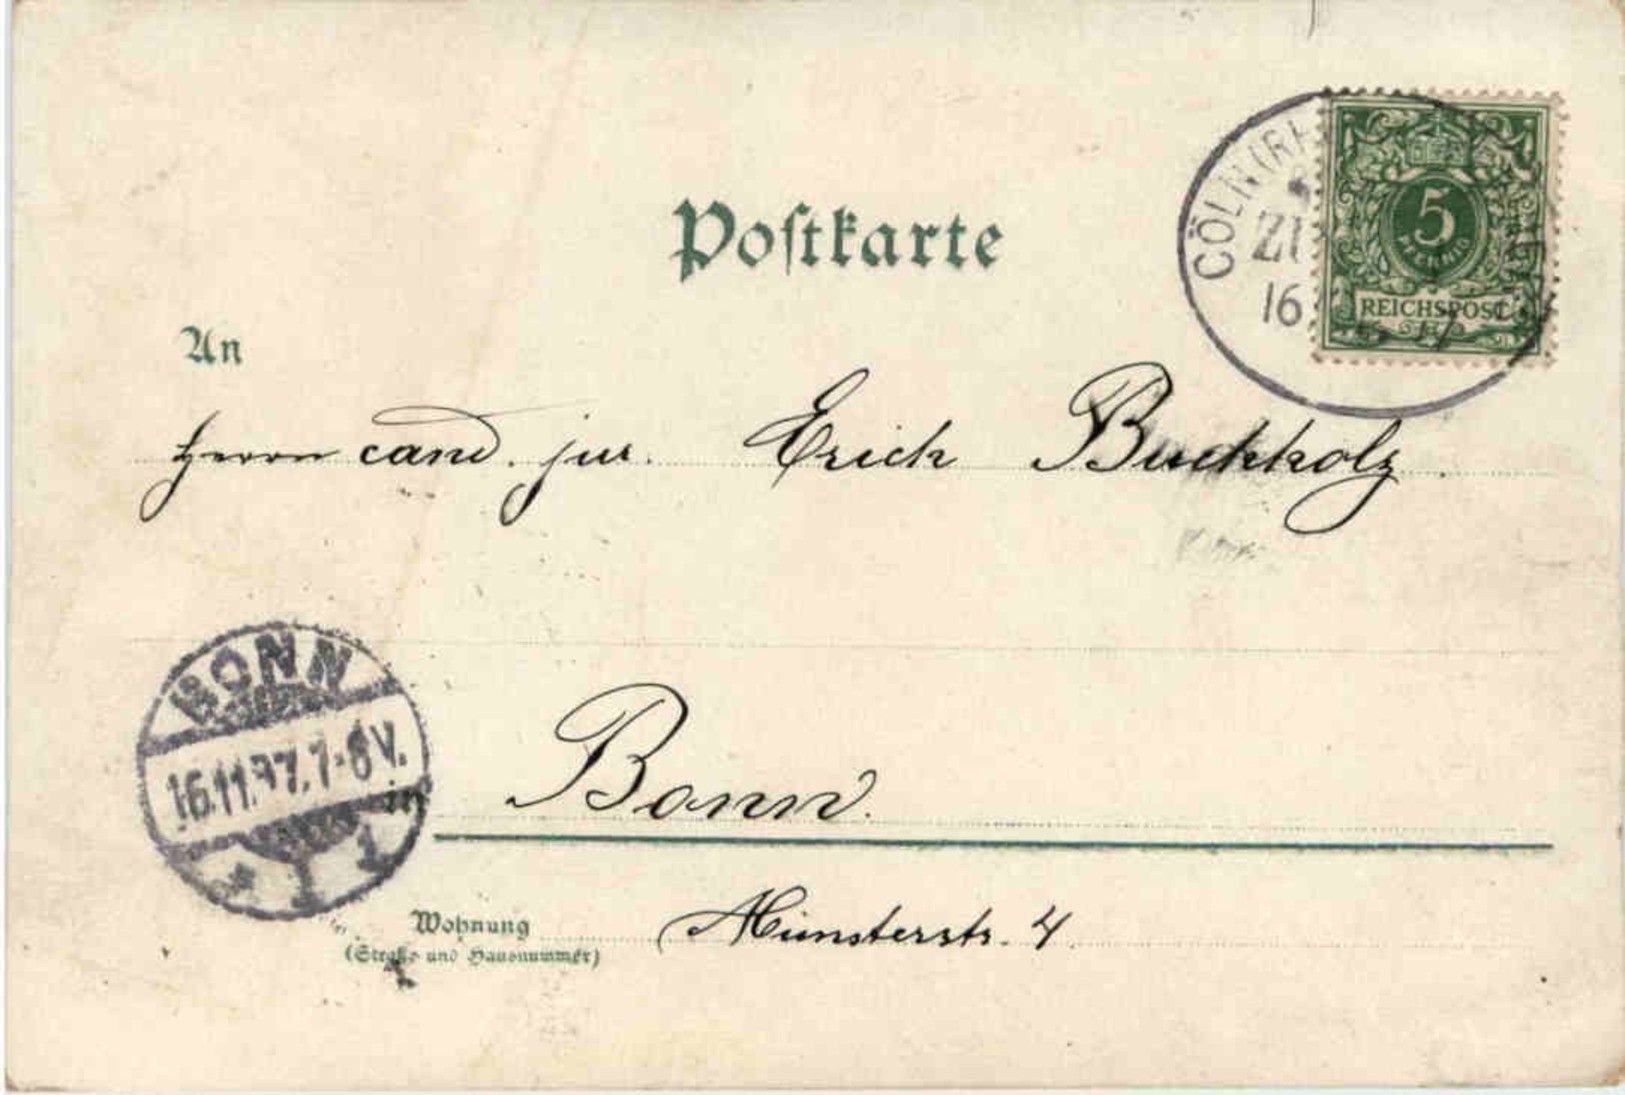 Postkarte
CÖLN (RH
ZI
16
5
PFENNIG
REICHSPOST
An
Herrn cand. jur. Erich Buchholz.
BONN
16.11.97.7-8V.
1
Bonn.
Wohnung Münsterstr. 4.
(Straße und Hausnummer)